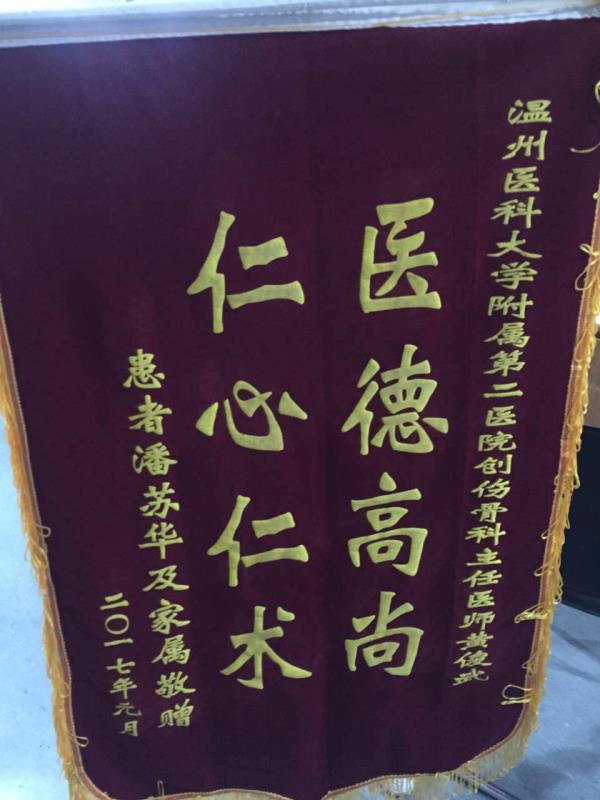 温州医科大学附属第二医院创伤骨科主任医师黄俊武
医德高尚
仁心仁术
患者潘苏华及家属敬赠
二〇一七年元月